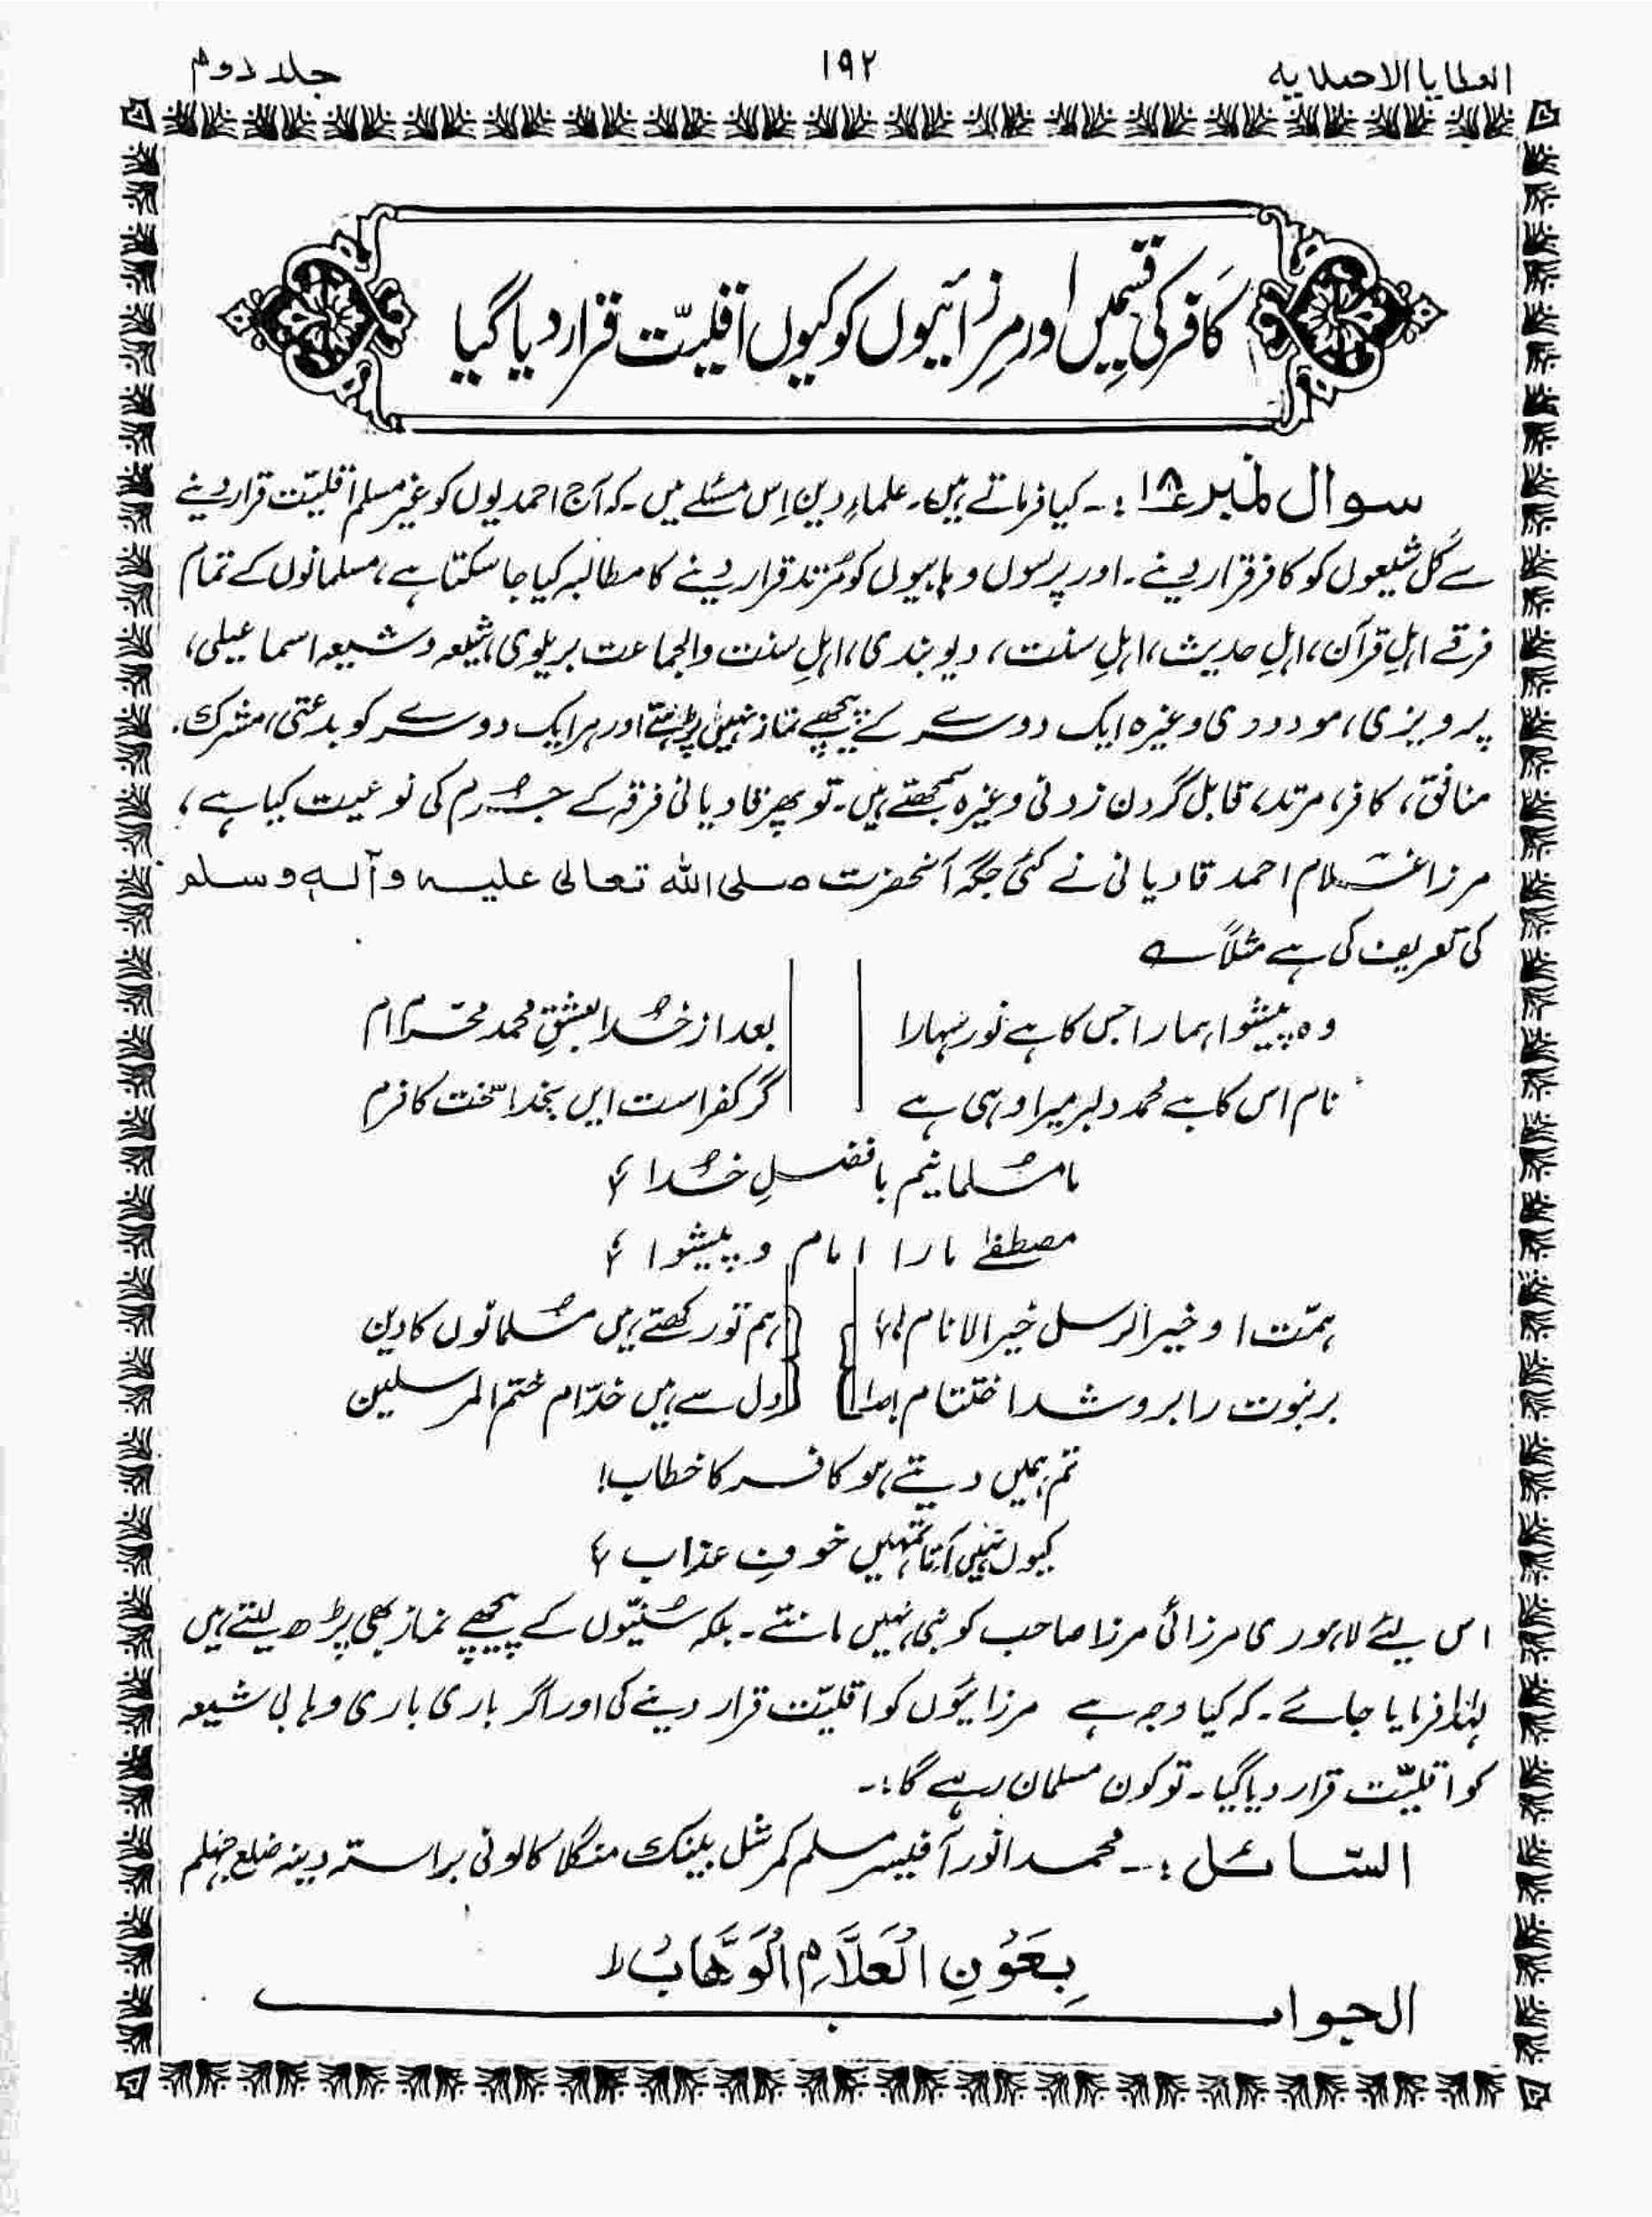 العطایا الاحمدیہ ۱۹۲ جلد دوم
کافر کی قسمیں اور مرزائیوں کو کیوں اقلیّت قرار دیا گیا
سوال نمبر ۱۸ :۔ کیا فرماتے ہیں۔ علماءِ دین اِس مسئلے میں۔ کہ آج احمدیوں کو غیر مسلم اقلیّت قرار دینے
سے کل شیعوں کو کافر قرار دینے۔ اور پرسوں وہابیوں کو مُرتد قرار دینے کا مطالبہ کیا جا سکتا ہے، مسلمانوں کے تمام
فرقے اہلِ قرآن، اہلِ حدیث، اہلِ سنت، دیوبندی، اہلِ سنت والجماعت بریلوی، شیعہ و شیعہ اسماعیلی،
پرویزی، مودودی وغیرہ ایک دوسرے کے پیچھے نماز نہیں پڑھتے اور ہر ایک دوسرے کو بدعتی، مشرک،
منافق، کافر، مرتد، قابل گردن زدنی وغیرہ سمجھتے ہیں۔ تو پھر قادیانی فرقہ کے جُرم کی نوعیت کیا ہے،
مرزا غلام احمد قادیانی نے کئی جگہ آنحضرت صلی اللہ تعالیٰ علیہ وآلہٖ وسلم
کی تعریف کی ہے مثلاً ؎
وہ پیشوا ہمارا جس کا ہے نور سہارا بعد از خُدا بعشقِ محمد مخرّم ام
نام اس کا ہے محمد دلبر میرا وہی ہے گر کفر است ایں بخدا سخت کافرم
ما مُسلمانیم با فضلِ خُدا ؛
مصطفےٰ مارا امام و پیشوا ؛
ہمّت او خیر الرسل خیر الانام ہم تو رکھتے ہیں مُسلمانوں کا دین
بر نبوت را برو شد اختتام دل سے ہیں خدّام ختم المرسلین
تم ہمیں دیتے ہو کافر کا خطاب!
کیوں نہیں آتا تمہیں خوفِ عذاب ؛
اس لیئے لاہوری مرزائی مرزا صاحب کو نبی نہیں مانتے۔ بلکہ سُنیّوں کے پیچھے نماز بھی پڑھ لیتے ہیں
لہٰذا فرمایا جائے۔ کہ کیا وجہ ہے مرزائیوں کو اقلیّت قرار دینے کی اور اگر باری باری وہابی شیعہ
کو اقلیّت قرار دیا گیا۔ تو کون مسلمان رہے گا؛۔
السّائل :۔ محمد انور آفیسر مسلم کمرشل بینک منگلا کالونی براستہ دینہ ضلع جہلم
بِعَوْنِ الْعَلَّامِ الْوَهَّابُ ط
الجواب